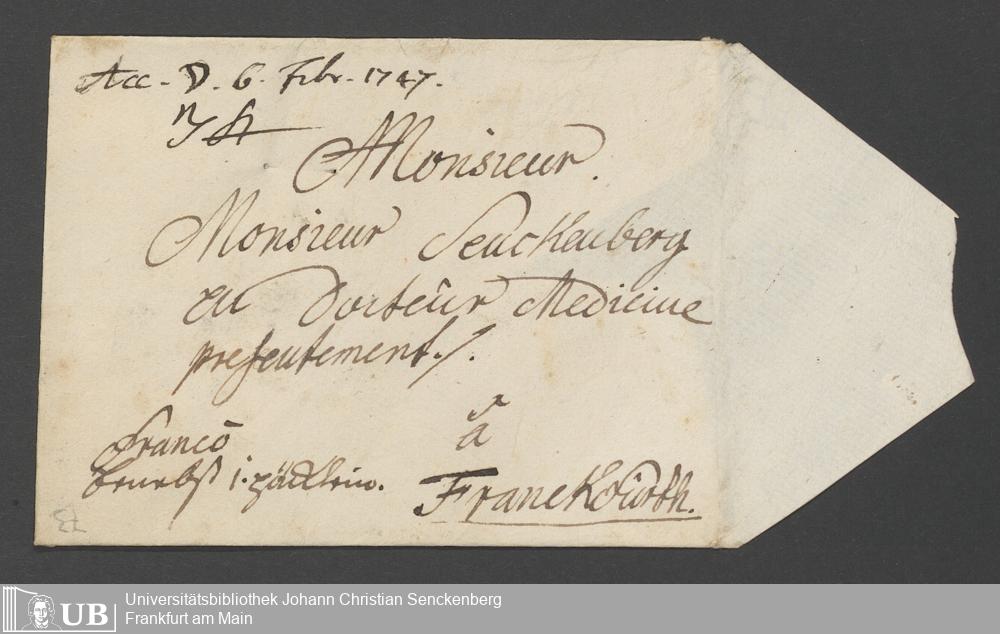 Acc - D. 6. Febr. 1747.
Monsieur.
Monsieur Senckenberg
en Docteur Medicine
presentement./.
à
Franckfurth.
Franco
benebst 1. päcklein.
37
UB
Universitätsbibliothek Johann Christian Senckenberg
Frankfurt am Main